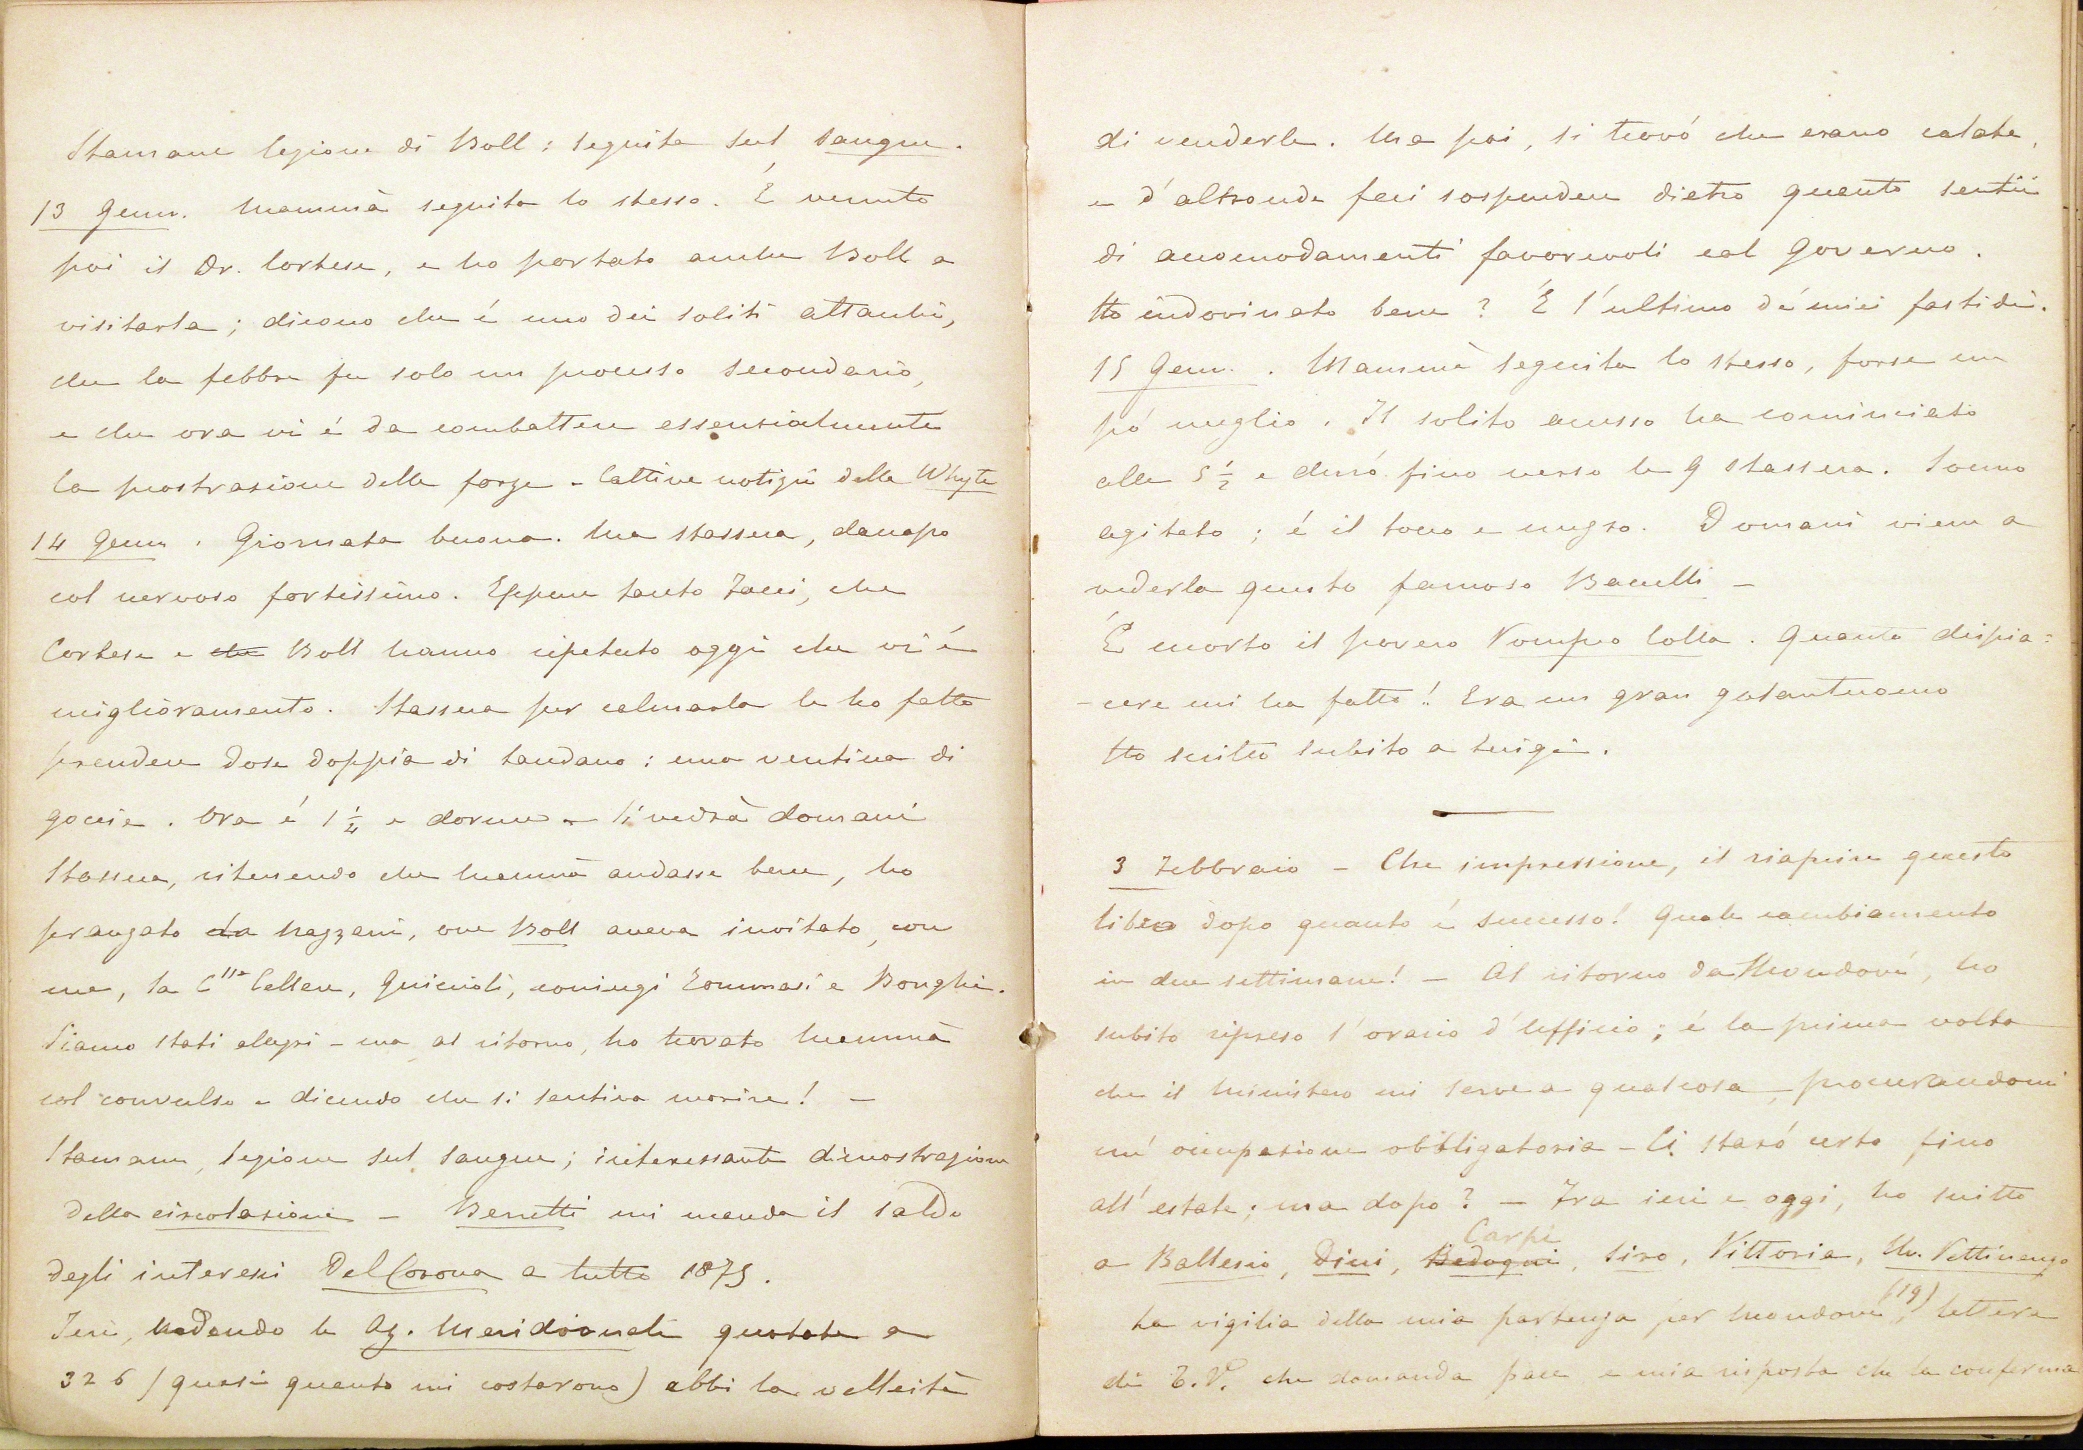 Stamane lezione di Boll: seguita sul sangue.
13 Genn. Mammà seguita lo stesso. É venuto
poi il Dr. Cortese, e ho portato anche Boll a
visitarla; dicono che é uno dei soliti attacchi,
che la febbre fu solo un processo secondario,
e che ora vi é da combattere essenzialmente
la prostrazione delle forze - Cattive notizie della Whyte
14 Genn. Giornata buona. Ma stassera, daccapo
col nervoso fortissimo. Eppure tanto Tacci, che
Cortese e che Boll hanno ripetuto oggi che vi é
miglioramento. Stassera per calmarla le ho fatto
prendere dose doppia di laudano: una ventina di
goccie. Ora é 1 1/4 e dorme - Si vedrà domani
Stassera, ritenendo che Mammà andasse bene, ho
pranzato da Nazzani, ove Boll aveva invitato, con
me, la C.lla Cellere, Guiccioli, coniugi Tommasi e Bonghi.
Siamo stati allegri - ma al ritorno, ho trovato Mammà
col convulso e dicendo che si sentiva morire! -
Stamane, lezione sul sangue; interessante dimostrazione
della circolazione - Benetti mi manda il saldo
degli interessi Del Corona a tutto 1875.
Ieri, vedendo le Az. Meridionali quotate a
326 (quasi quanto mi costarono) ebbi la velleità
di venderle. Ma poi, si trovó che erano calate,
e d'altronde feci sospendere dietro quanto sentii
di accomodamenti favorevoli col Governo.
Ho indovinato bene? É l'ultimo de' miei fastidi.
15 Genn. Mammà seguita lo stesso, forse un
pó meglio. Il solito accesso ha cominciato
alle 5 1/2 e duró fino verso le 9 stassera. Sonno
agitato; é il tocco e mezzo. Domani viene a
vederla questo famoso Baccelli -
É morto il povero Pompeo Colla. Quanto dispia=
-cere mi ha fatto! Era un gran galantuomo
Ho scritto subito a Luigi.
3 Febbraio - Che impressione, il riaprire questo
libro dopo quanto é successo! Quale cambiamento
in due settimane! - Al ritorno da Mondoví, ho
subito ripreso l'orario d'Ufficio; é la prima volta
che il Ministero mi serve a qualcosa, procurandomi
un' occupazione obbligatoria - Ci staró certo fino
all' estate; ma dopo? - Fra ieri e oggi, ho scritto
Carpi
a Ballerio, Dini, Bedogni, Siro, Vittoria, Me. Pettinengo
La vigilia della mia partenza per Mondoví (19), lettera
di T.V. che domanda pace e mia risposta che la conferma